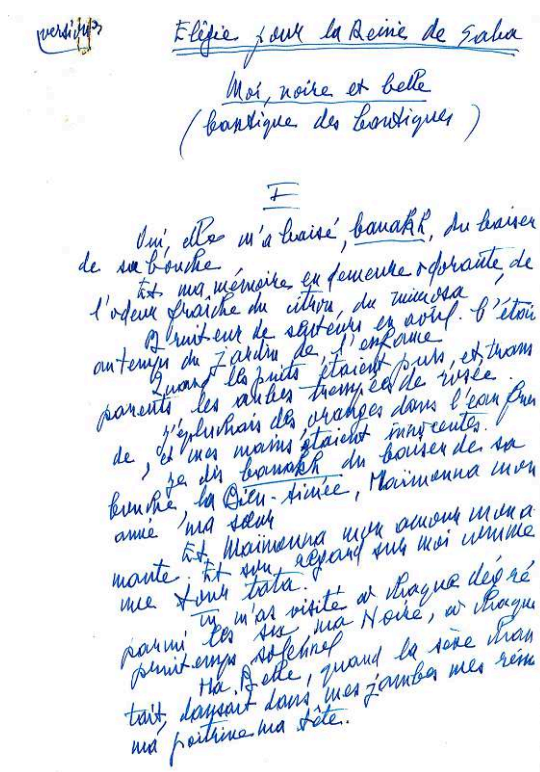 version
Elégie pour la Reine de Saba
Moi, noire et belle
(Cantique des Cantiques)
I
Oui, elle m'a baisé, banakh, du baiser
de sa bouche
Et ma mémoire en demeure odorante, de
l'odeur fraîche du citron, du mimosa
de senteurs en avril. C'étai
au temps du jardin de l'enfance
Quand les puits étaient purs, et trans
parents les aubes trempées de rosée.
J'épluchais des oranges dans l'eau
de, et mes mains étaient innocentes.
Je dis banakh du baiser de sa
bouche, la Bien-Aimée, Maïmouna mon
amie ma sœur
Et Maïmouna mon amour mon a
mante. Et son regard sur moi comme
une tour tata.
Tu m'as visité à chaque degré
parmi les six, ma Noire, à chaque
printemps solennel
Ma Belle, quand la sève chan
tait, dansait dans mes jambes mes reins
ma poitrine ma tête.